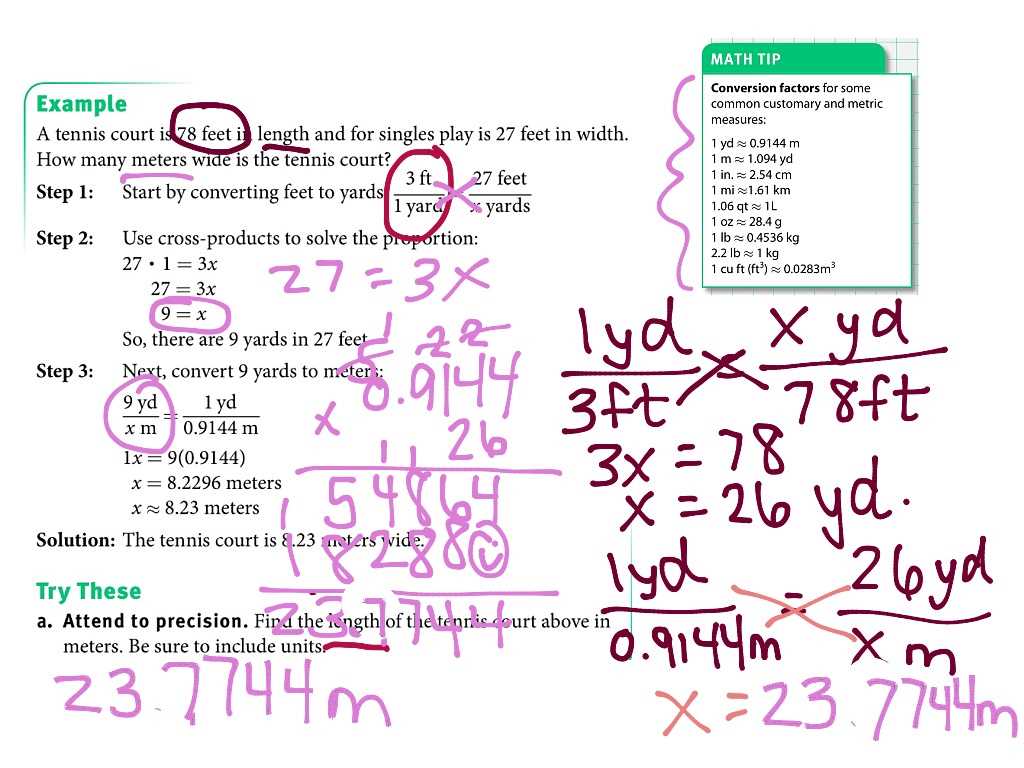 MATH TIP
Conversion factors for some
common customary and metric
measures:
1 yd ≈ 0.9144 m
1 m ≈ 1.094 yd
1 in. ≈ 2.54 cm
1 mi ≈ 1.61 km
1.06 qt ≈ 1L
1 oz ≈ 28.4 g
1 lb ≈ 0.4536 kg
2.2 lb ≈ 1 kg
1 cu ft (ft³) ≈ 0.0283m³
Example
A tennis court is 78 feet in length and for singles play is 27 feet in width.
How many meters wide is the tennis court?
Step 1: Start by converting feet to yards
3 ft 27 feet
1 yard x yards
Step 2: Use cross-products to solve the proportion:
27 • 1 = 3x
27 = 3x
9 = x
So, there are 9 yards in 27 feet
27 = 3x
Step 3: Next, convert 9 yards to meters:
9 yd = 1 yd
x m 0.9144 m
1x = 9(0.9144)
x = 8.2296 meters
x ≈ 8.23 meters
Solution: The tennis court is 8.23 meters wide.
1 2 2
0.9144
x 26
1 1
54864
1
18288
23.7744
1yd = x yd
3ft 78ft
3x = 78
x = 26 yd.
1yd = 26yd
0.9144m x m
x = 23.7744m
Try These
a. Attend to precision. Find the length of the tennis court above in
meters. Be sure to include units.
23.7744m